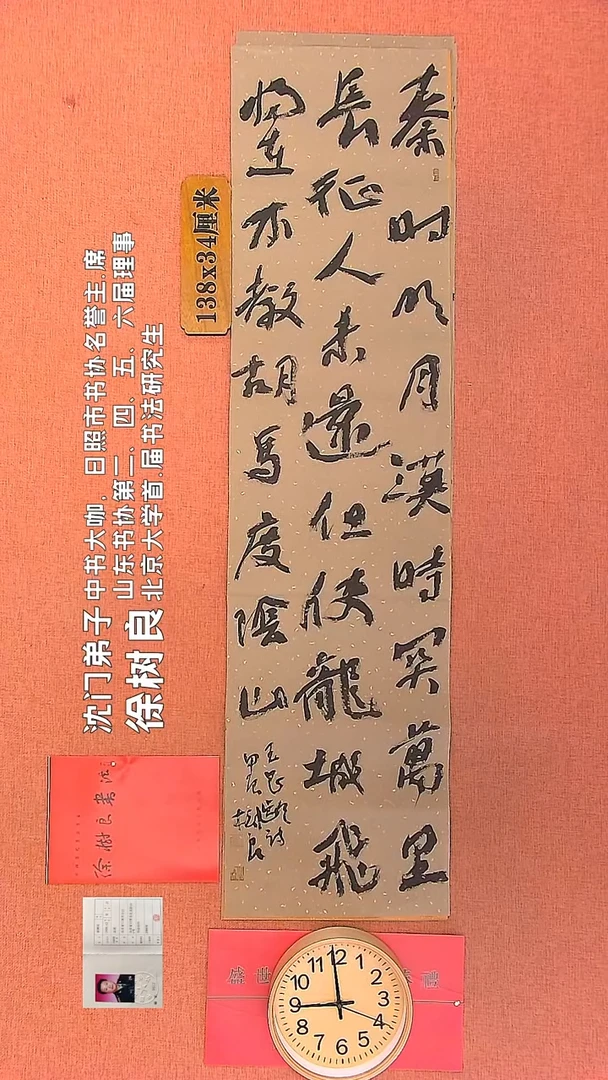 秦时明月漢時关萬里
長征人未還但使龍城飛
将在不教胡馬度陰山
王昌齡诗
甲辰樹良
138x34厘米
沈门弟子 中书大咖，日照市书协名誉主.席
山东书协第三、四、五、六届理事
徐树良 北京大学首.届书法研究生
徐樹良書法
12 1 2 3 4 5 6 7 8 9 10 11